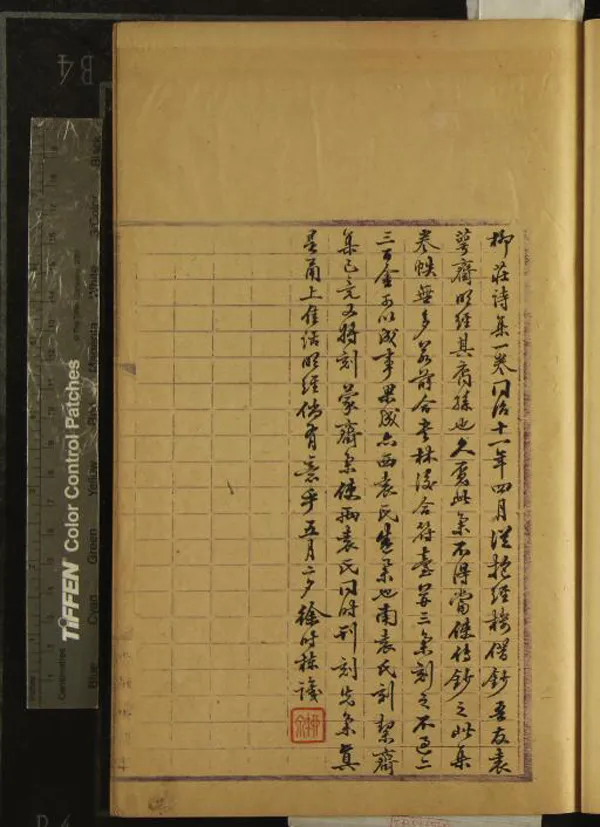 柳莊詩集一卷同治十一年四月從抱經樓借鈔吾友袁
萼齋明經其裔孫也久覓此集不得當傳鈔之此集
卷帙無多若薈合者林後合符臺等三集刻之不過二
三百金可以成事果然亦西袁氏盛業也南袁氏刻絜齋
集已竟又將刻蒙齋集使兩袁氏同時刊刻先集真
是甬上佳話明經倘有意乎五月二夕徐時棟識
TIFFEN Color Control Patches
Blue
Cyan
Green
Yellow
Red
Magenta
White
3/Color
Black
B4